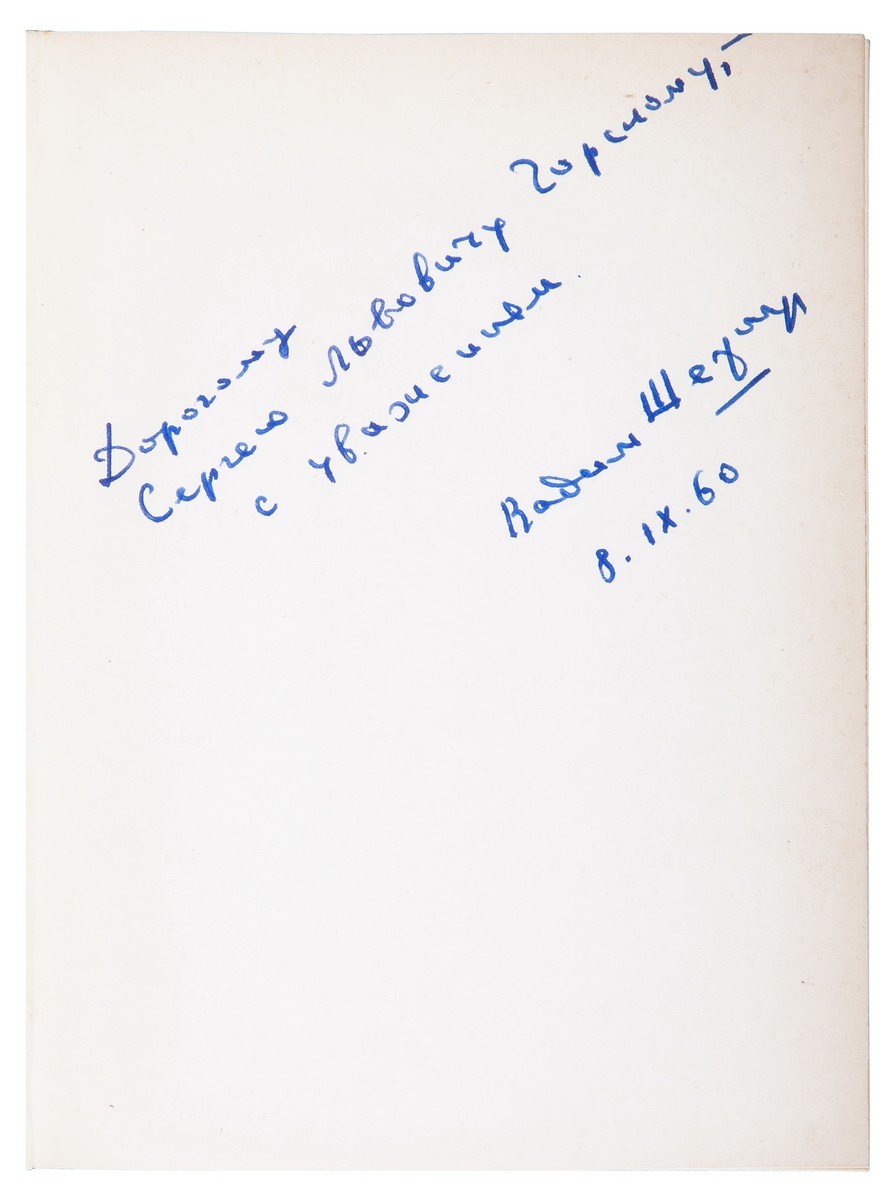 Дорогому
Сергею Львовичу Горскому, –
с уважением.
Вадим
8.IX.60